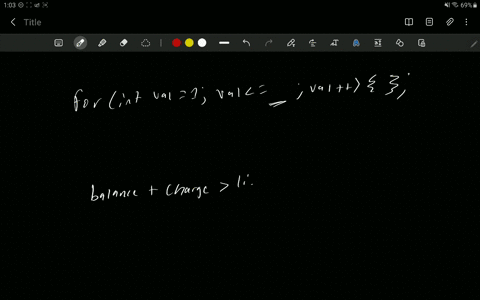 1:03
69%
Title
for (int val = 1; val <= _ ; val++) { };
balance + charge > li.